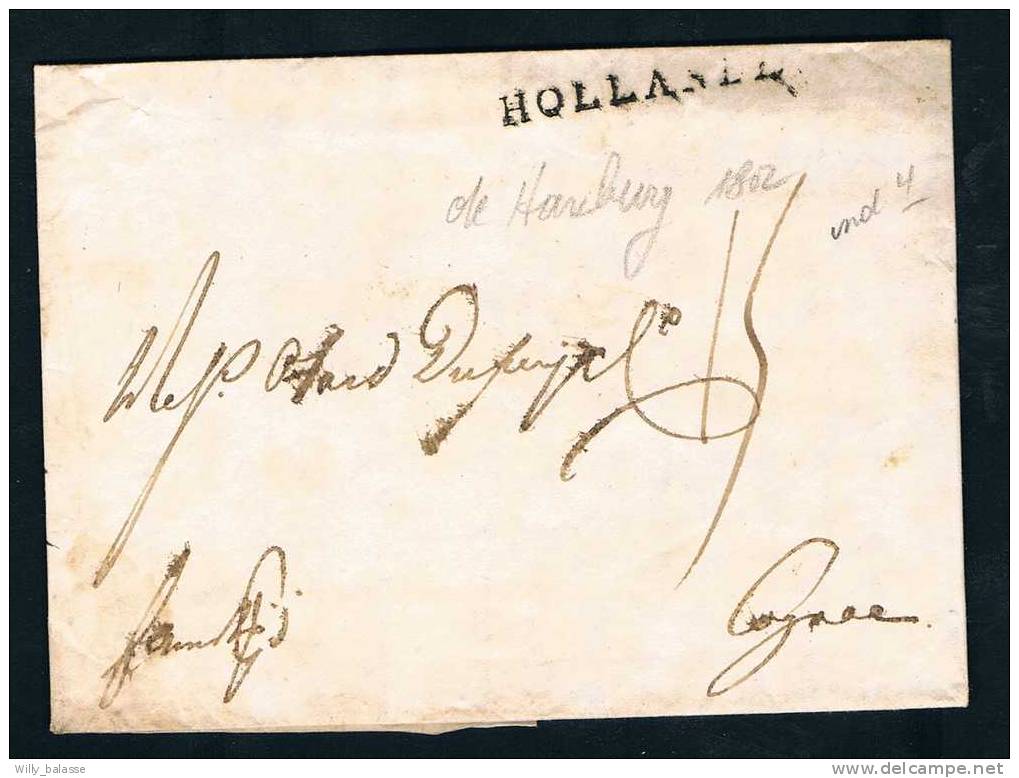 HOLLANDE
de Hamburg 1802
ind 4
Mess. Otard Dupuy & Co
15
franco
Cognac.
Willy_balasse
delcampe.net